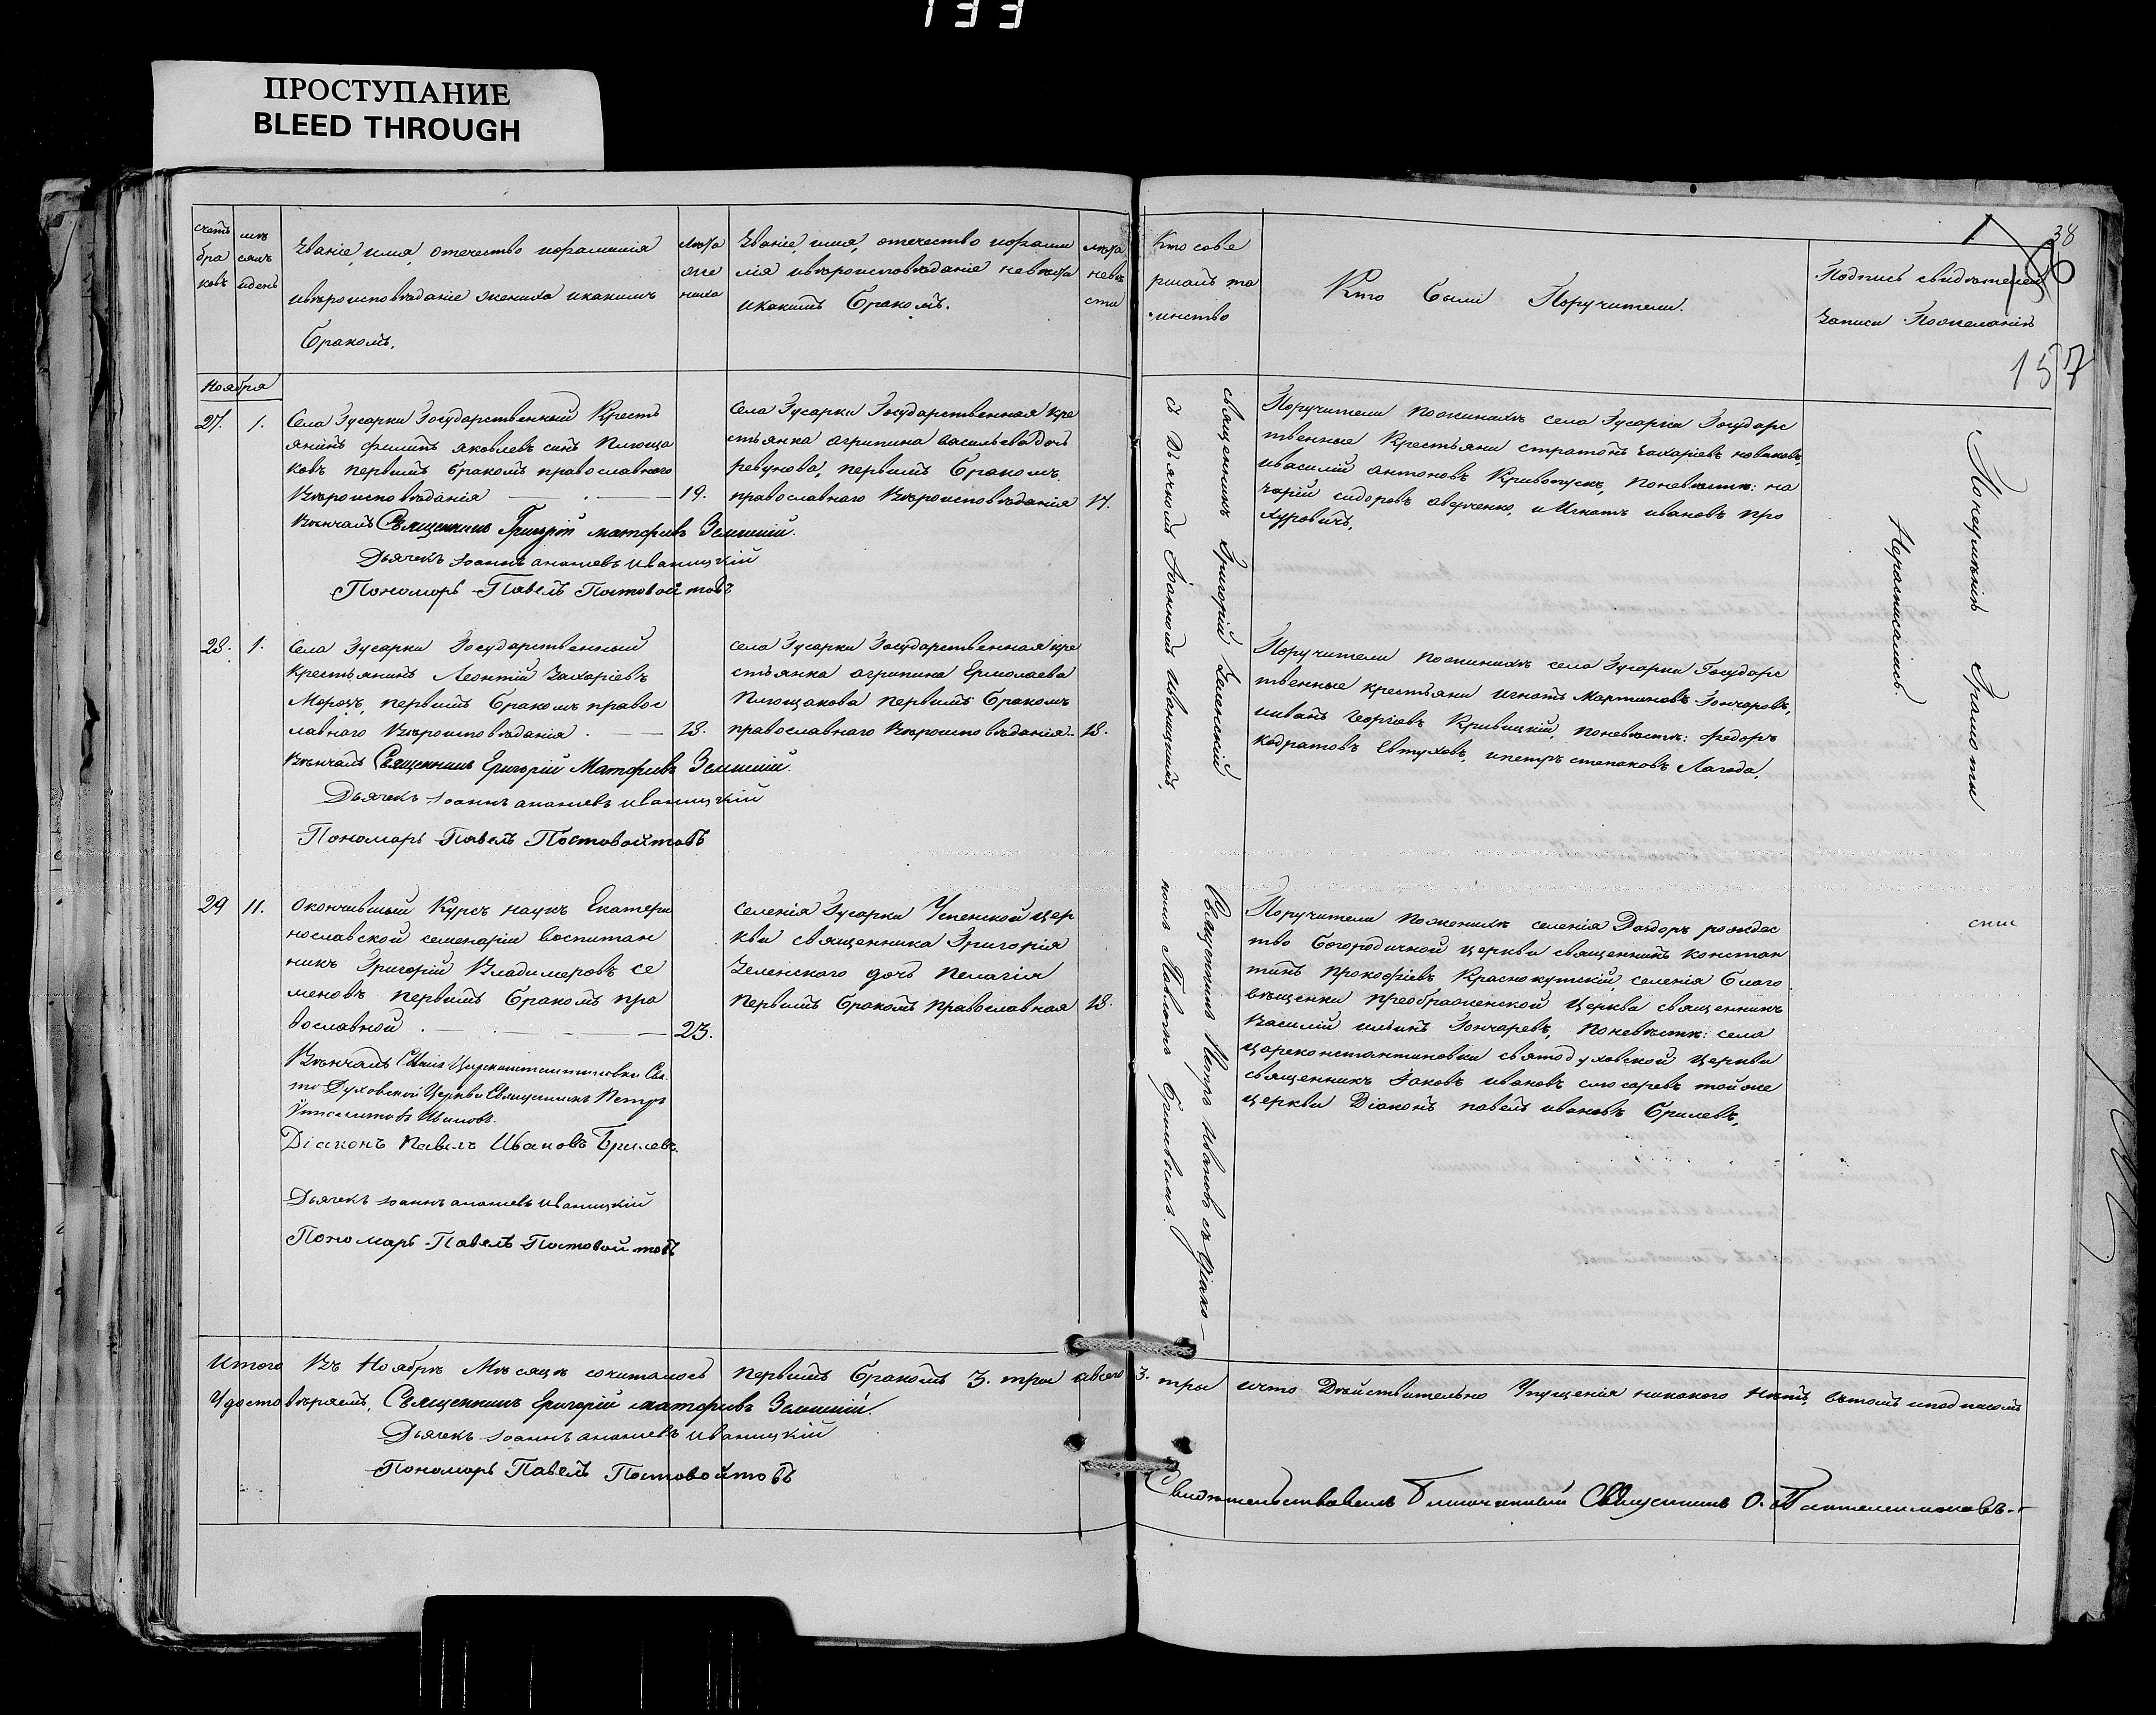 133
ПРОСТУПАНИЕ
BLEED THROUGH
38
157
счетъ бра ковъ
мѣ сяцъ и день
Званіе, имя, отечество и фамилія
и вѣроисповѣданіе жениха и какимъ
бракомъ.
лѣта же ниха
Званіе, имя, отечество и фами
лія и вѣроисповѣданіе невѣста
и какимъ бракомъ.
лѣта невѣ сти
Кто сове
ршалъ та
инство
Кто были Поручители.
Подпись свидѣтелей
записи По желанію
Ноября
27. 1.
Села Гусарки Государственный Кресть
янинъ Филипъ яковлевъ синъ Площа
ковъ первымъ бракомъ православнаго
Вѣроисповѣданія 19.
Вѣнчалъ Священникъ Григорій Матфіевъ Зеленскій.
Дьячекъ Іоаннъ ананіевъ иваницкій
Пономарь Павелъ Постовойтовъ
Села Гусарки Государственная кре
стьянка агрипина васильева дочь
ревунова, первымъ бракомъ
православнаго Вѣроисповѣданія 17.
священникъ Григорій Зеленскій
съ Дьячкомъ Іоанномъ иваницкимъ,
Поручители по женихѣ села Гусарки Государс
твенные Крестьяни стратонъ Захаріевъ новаковъ,
и василій антоновъ Кривопускъ, по невѣстѣ: на
зарій сидоровъ аверченко, и Игнатъ ивановъ про
хуровичъ,
По неумѣнію Грамоты
Нерасписались.
28. 1.
Села Гусарки Государственный
Крестьянинъ Леонтій Захаріевъ
Морозъ, первымъ бракомъ правос
лавнаго Вѣроисповѣданія 18.
Вѣнчалъ Священникъ Григорій Матфіевъ Зеленскій.
Дьячекъ Іоаннъ ананіевъ иваницкій
Пономарь Павелъ Постовойтовъ
села Гусарки Государственная кре
стьянка агрипина Ермолаева
Площакова первымъ бракомъ
православнаго Вѣроисповѣданія 18.
Поручители по женихѣ села Гусарки Государс
твенные крестьяни игнатъ Мартиновъ Гончаровъ,
и иванъ Георгіевъ Кривицкій, по невѣстѣ: федоръ
кадратовъ Евтуховъ, и петръ степановъ Лагода.
29 11.
Окончившый Курсъ наукъ Екатери
нославской семенаріи воспитан
никъ Григорій Владимеровъ Се
меновъ первымъ бракомъ пра
вославной 23.
Вѣнчалъ Села Цареконстантиновки Свя
то Духовской Церкви Священникъ Петръ
Ивановъ.
Діаконъ Павелъ Ивановъ Брилевъ.
Дьячекъ Іоаннъ ананіевъ иваницкій
Пономарь Павелъ Постовойтовъ
Селенія Гусарки Успенской цер
кви священника Григорія
Зеленского дочь пелагія
первымъ бракомъ православная 18.
Священникъ Петръ Ивановъ съ Діако-
номъ Павломъ Брилевымъ.
Поручители по женихѣ селенія Даздоръ рождес
тво богородичной церкви священникъ констан
тинъ прокофіевъ Краснокутскій, селенія благо
вѣщенки преображенской Церкви священникъ
Василій ильинъ Гончаревъ, по невѣстѣ: села
Цареконстантиновки святодуховской церкви
священникъ Іаковъ ивановъ слюсаревъ той же
церкви Діаконъ павелъ ивановъ брилевъ,
Итого Въ Ноябрѣ Мѣсяцѣ сочиталось первымъ бракомъ 3. три а всего 3. три и что Дѣйствительно Упущенія никакого нѣтъ, въ томъ и подписомъ
Удостовѣряемъ, Священникъ Григорій Матфіевъ Зеленскій.
Дьячекъ Іоаннъ ананіевъ иваницкій
Пономарь Павелъ Постовойтовъ
Свидѣтельствовалъ Благочинный Священникъ О. Пантелеимоновъ